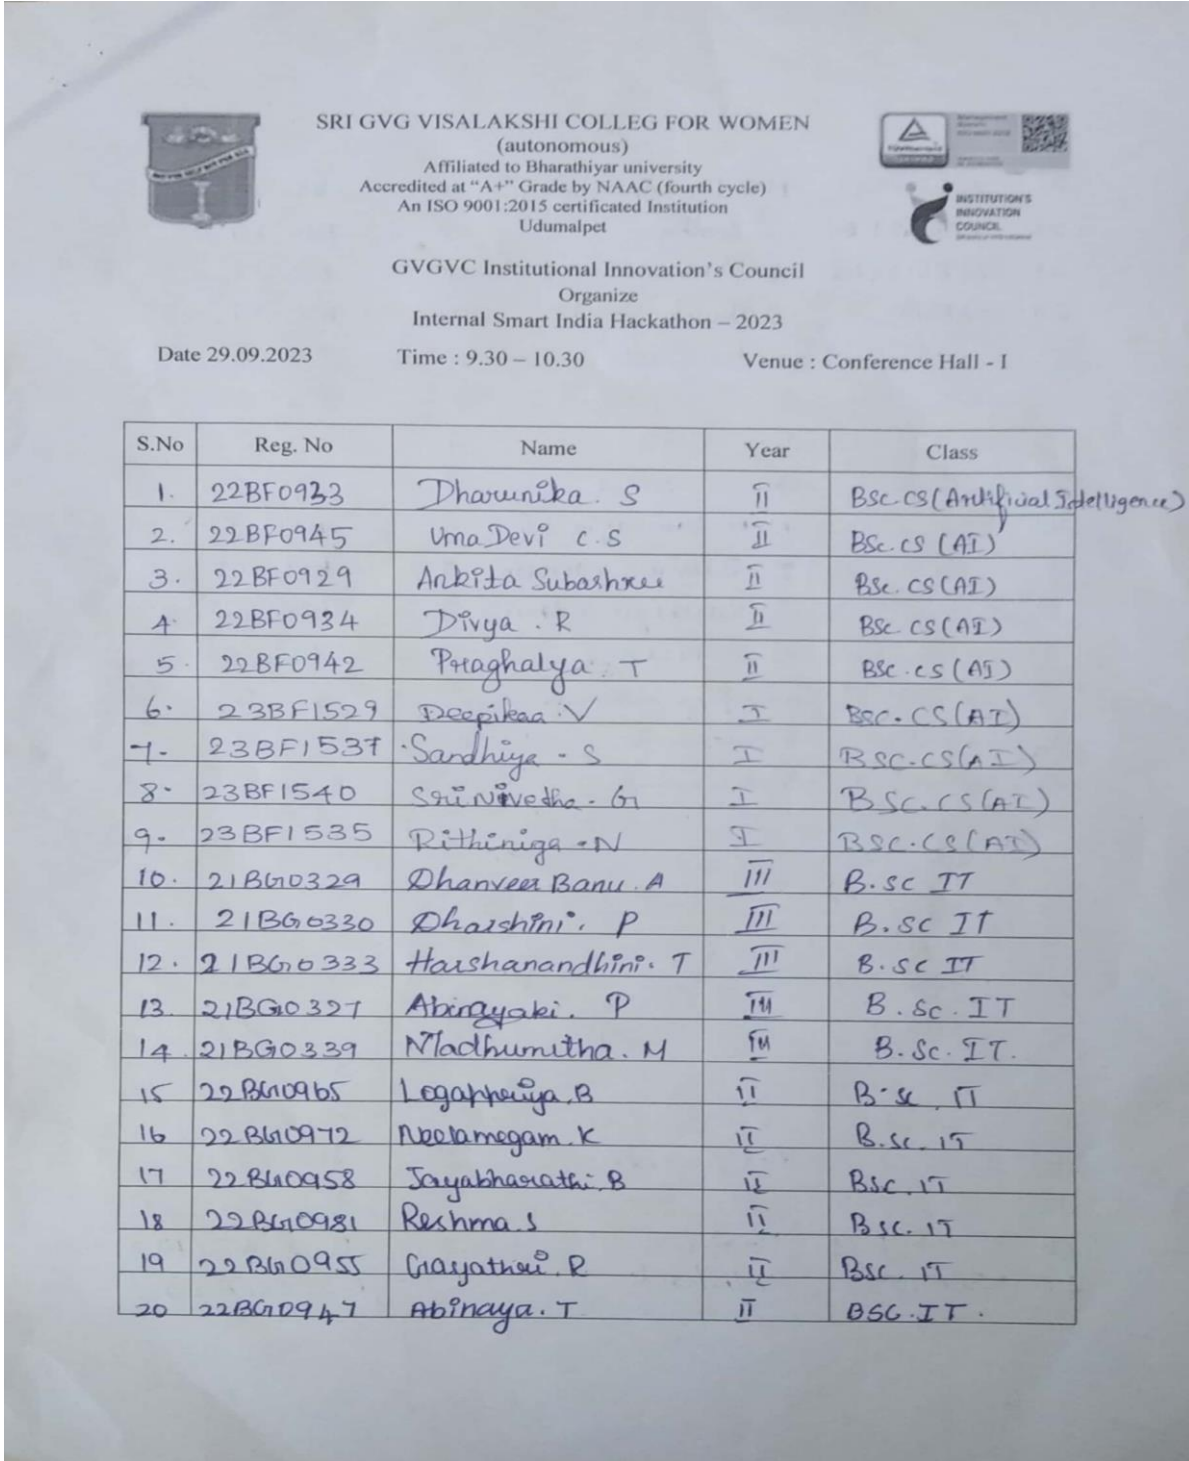 SRI GVG VISALAKSHI COLLEG FOR WOMEN
(autonomous)
Affiliated to Bharathiyar university
Accredited at "A+" Grade by NAAC (fourth cycle)
An ISO 9001:2015 certificated Institution
Udumalpet
INSTITUTION'S
INNOVATION
COUNCIL
GVGVC Institutional Innovation's Council
Organize
Internal Smart India Hackathon – 2023
Date 29.09.2023 Time : 9.30 – 10.30 Venue : Conference Hall - I
S.No Reg. No Name Year Class
1. 22BF0933 Dharunika. S II BSC.CS(Artificial Intelligence)
2. 22BF0945 Uma Devi C.S II BSc.CS (AI)
3. 22BF0929 Ankita Subashree II BSc.CS(AI)
4. 22BF0934 Divya . R II BSc.CS(AI)
5. 22BF0942 Praghalya. T II BSC.CS(AI)
6. 23BF1529 Deepikaa.V I BSC.CS(AI)
7. 23BF1537 Sandhiya - S I BSC.CS(AI)
8. 23BF1540 SriNivetha - G I BSC.CS(AI)
9. 23BF1535 Rithiniga - N I BSC.CS(AI)
10. 21BG0329 Dhanveer Banu. A III B.sc IT
11. 21BG0330 Dharshini. P III B.sc IT
12. 21BG0333 Harshanandhini. T III B.sc IT
13. 21BG0327 Abirayaki. P III B.Sc.IT
14. 21BG0339 Madhumitha. M III B.Sc.IT.
15 22BG0965 Logappriya.B II B.sc.IT
16 22BG0972 Neelamegam.K II B.sc.IT
17 22BG0958 Jayabharathi.B II BSc.IT
18 22BG0981 Reshma.S II BSC.IT
19 22BG0955 Gayathri.R II BSC.IT
20 22BG0947 Abinaya.T II BSC.IT.